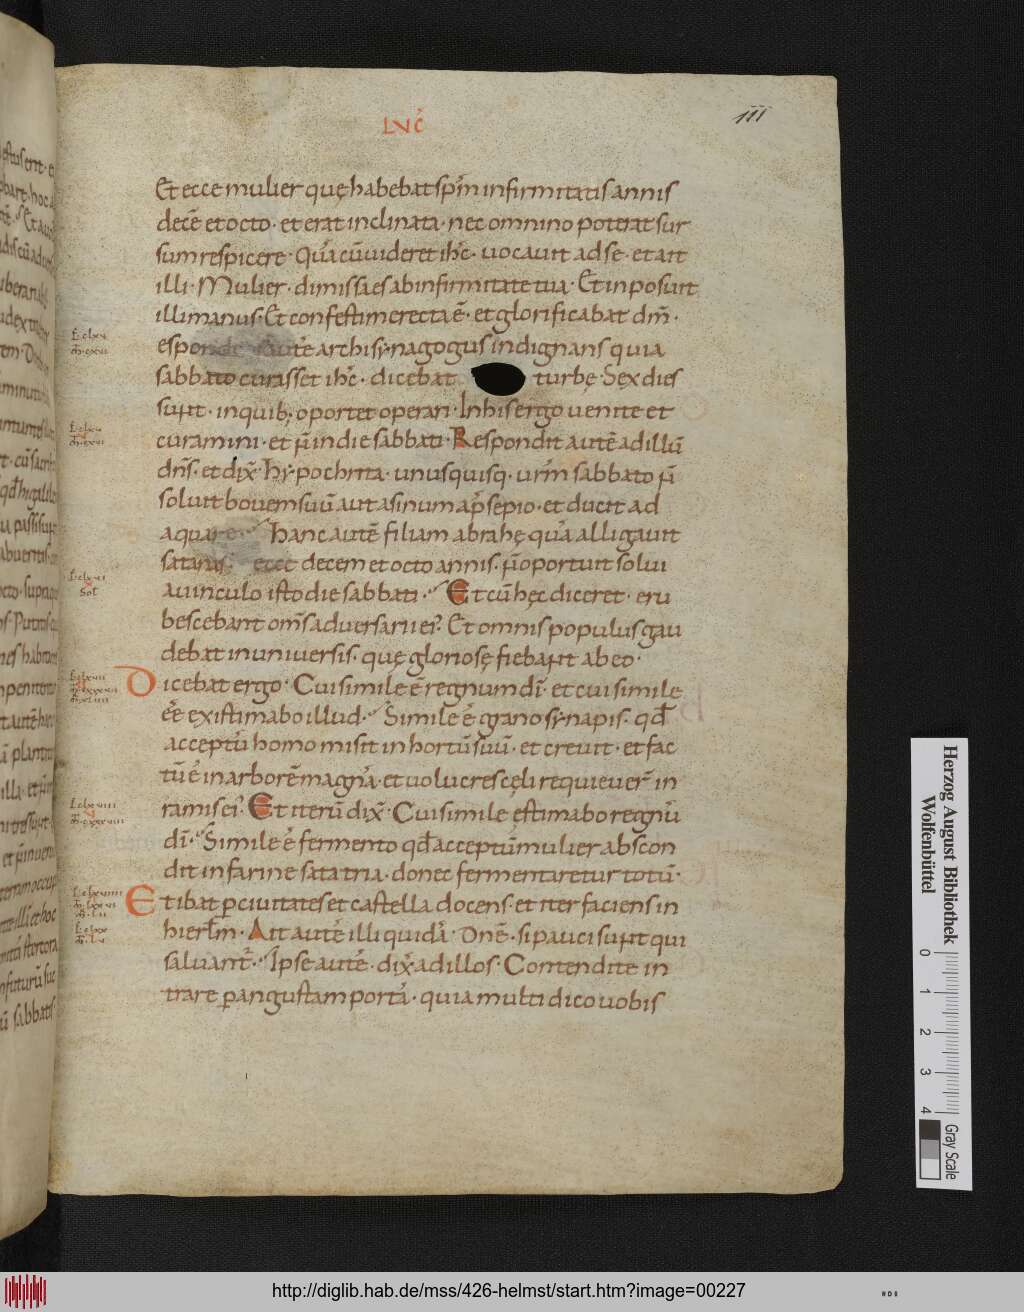 LVC̄
III
Et ecce mulier quę habebat sp̄m infirmitatis annis
decē et octo· et erat inclinata· nec omnino poterat sur
sum respicere· Quā cū uideret ih̄c· uocauit ad se· et ait
illi· Mulier· dimissa es ab infirmitate tua· Et inposuit
illi manus· Et confestim erecta ē· et glorificabat dm̄·
archisynagogus indignans quia
sabbato curasset ih̄c· dicebat turbę· Sex dies
sunt· in quib; oportet operari· In his ergo uenite et
curamini· et n̄ in die sabbati· Respondit autē ad illū
dn̄s· et dix̄· Hypochrita· unusquisq· ur̄m sabbato n̄
soluit bouem suū aut asinum a p̄sepio· et ducit ad
Hanc autē filiam abrahę quā alligauit
satanas· decem et octo annis· n̄ oportuit solui
a uinculo isto die sabbati· Et cū hęc diceret· eru
bescebant om̄s aduersarii ei᾽· Et omnis populus gau
debat in uniuersis· quę gloriosę fiebant ab eo·
Dicebat ergo· Cui simile ē regnum dī· et cui simile
eē existimabo illud· Simile ē grano synapis· qd̄
acceptū homo misit in hortū suū· et creuit· et fac
tū ē in arborē magnā· et uolucres cęli requieuer̄ in
ramis ei᾽· Et iterū dix̄· Cui simile estimabo regnū
dī· Simile ē fermento qd̄ acceptū mulier abscon
dit in farine sata tria· donec fermentaretur totū·
Et ibat p ciuitates et castella docens· et iter faciens in
hierl̄m· Ait autē illi quidā· Dnē· si pauci sunt qui
saluant̄· Ipse autē· dix̄ ad illos· Contendite in
trare p angustam portā· quia multi dico uobis
Herzog August Bibliothek
Wolfenbüttel
0 1 2 3 4
Gray Scale
http://diglib.hab.de/mss/426-helmst/start.htm?image=00227